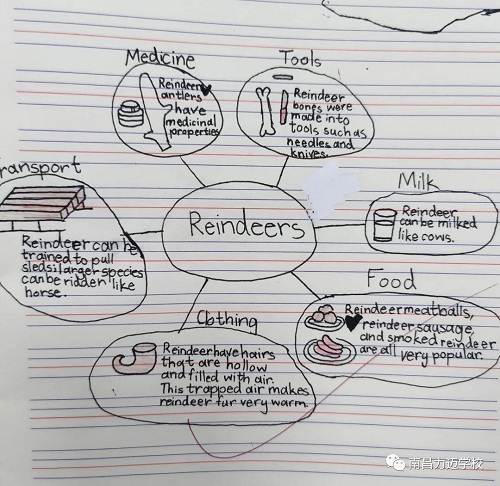 Medicine
Reindeer
antlers
have
medicinal
properties
Tools
Reindeer
bones were
made into
tools such as
needles and
knives.
ransport
Reindeer can be
trained to pull
sleds; larger species
can be ridden like
horse.
Reindeers
Milk
Reindeer
can be milked
like cows.
Food
Reindeer meatballs,
reindeer sausage,
and smoked reindeer
are all very popular.
Clothing
Reindeer have hairs
that are hollow
and filled with air.
This trapped air makes
reindeer fur very warm.
南昌方迈学校